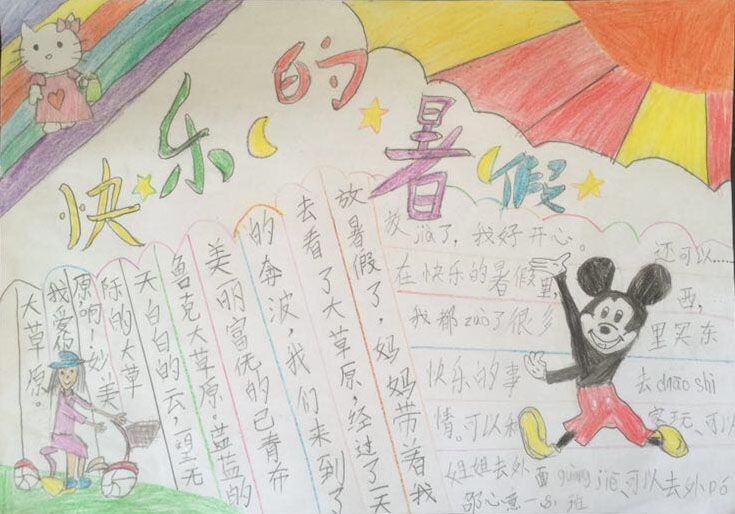 快乐的暑假
放暑假了，妈妈带着我
去看了大草原，经过了一天
的奔波，我们来到了
美丽富饶的巴音布
鲁克大草原。蓝蓝的
天白白的云，一望无
际的大草
原哟！妙，美
我爱你
大草原。
放jia了，我好开心。
在快乐的暑假里，
我都zuo了很多
快乐的事
情。可以和
姐姐去外面guang jie、可以去外po
家玩、可以
去chao shi
里买东
西，
还可以……
一.8班